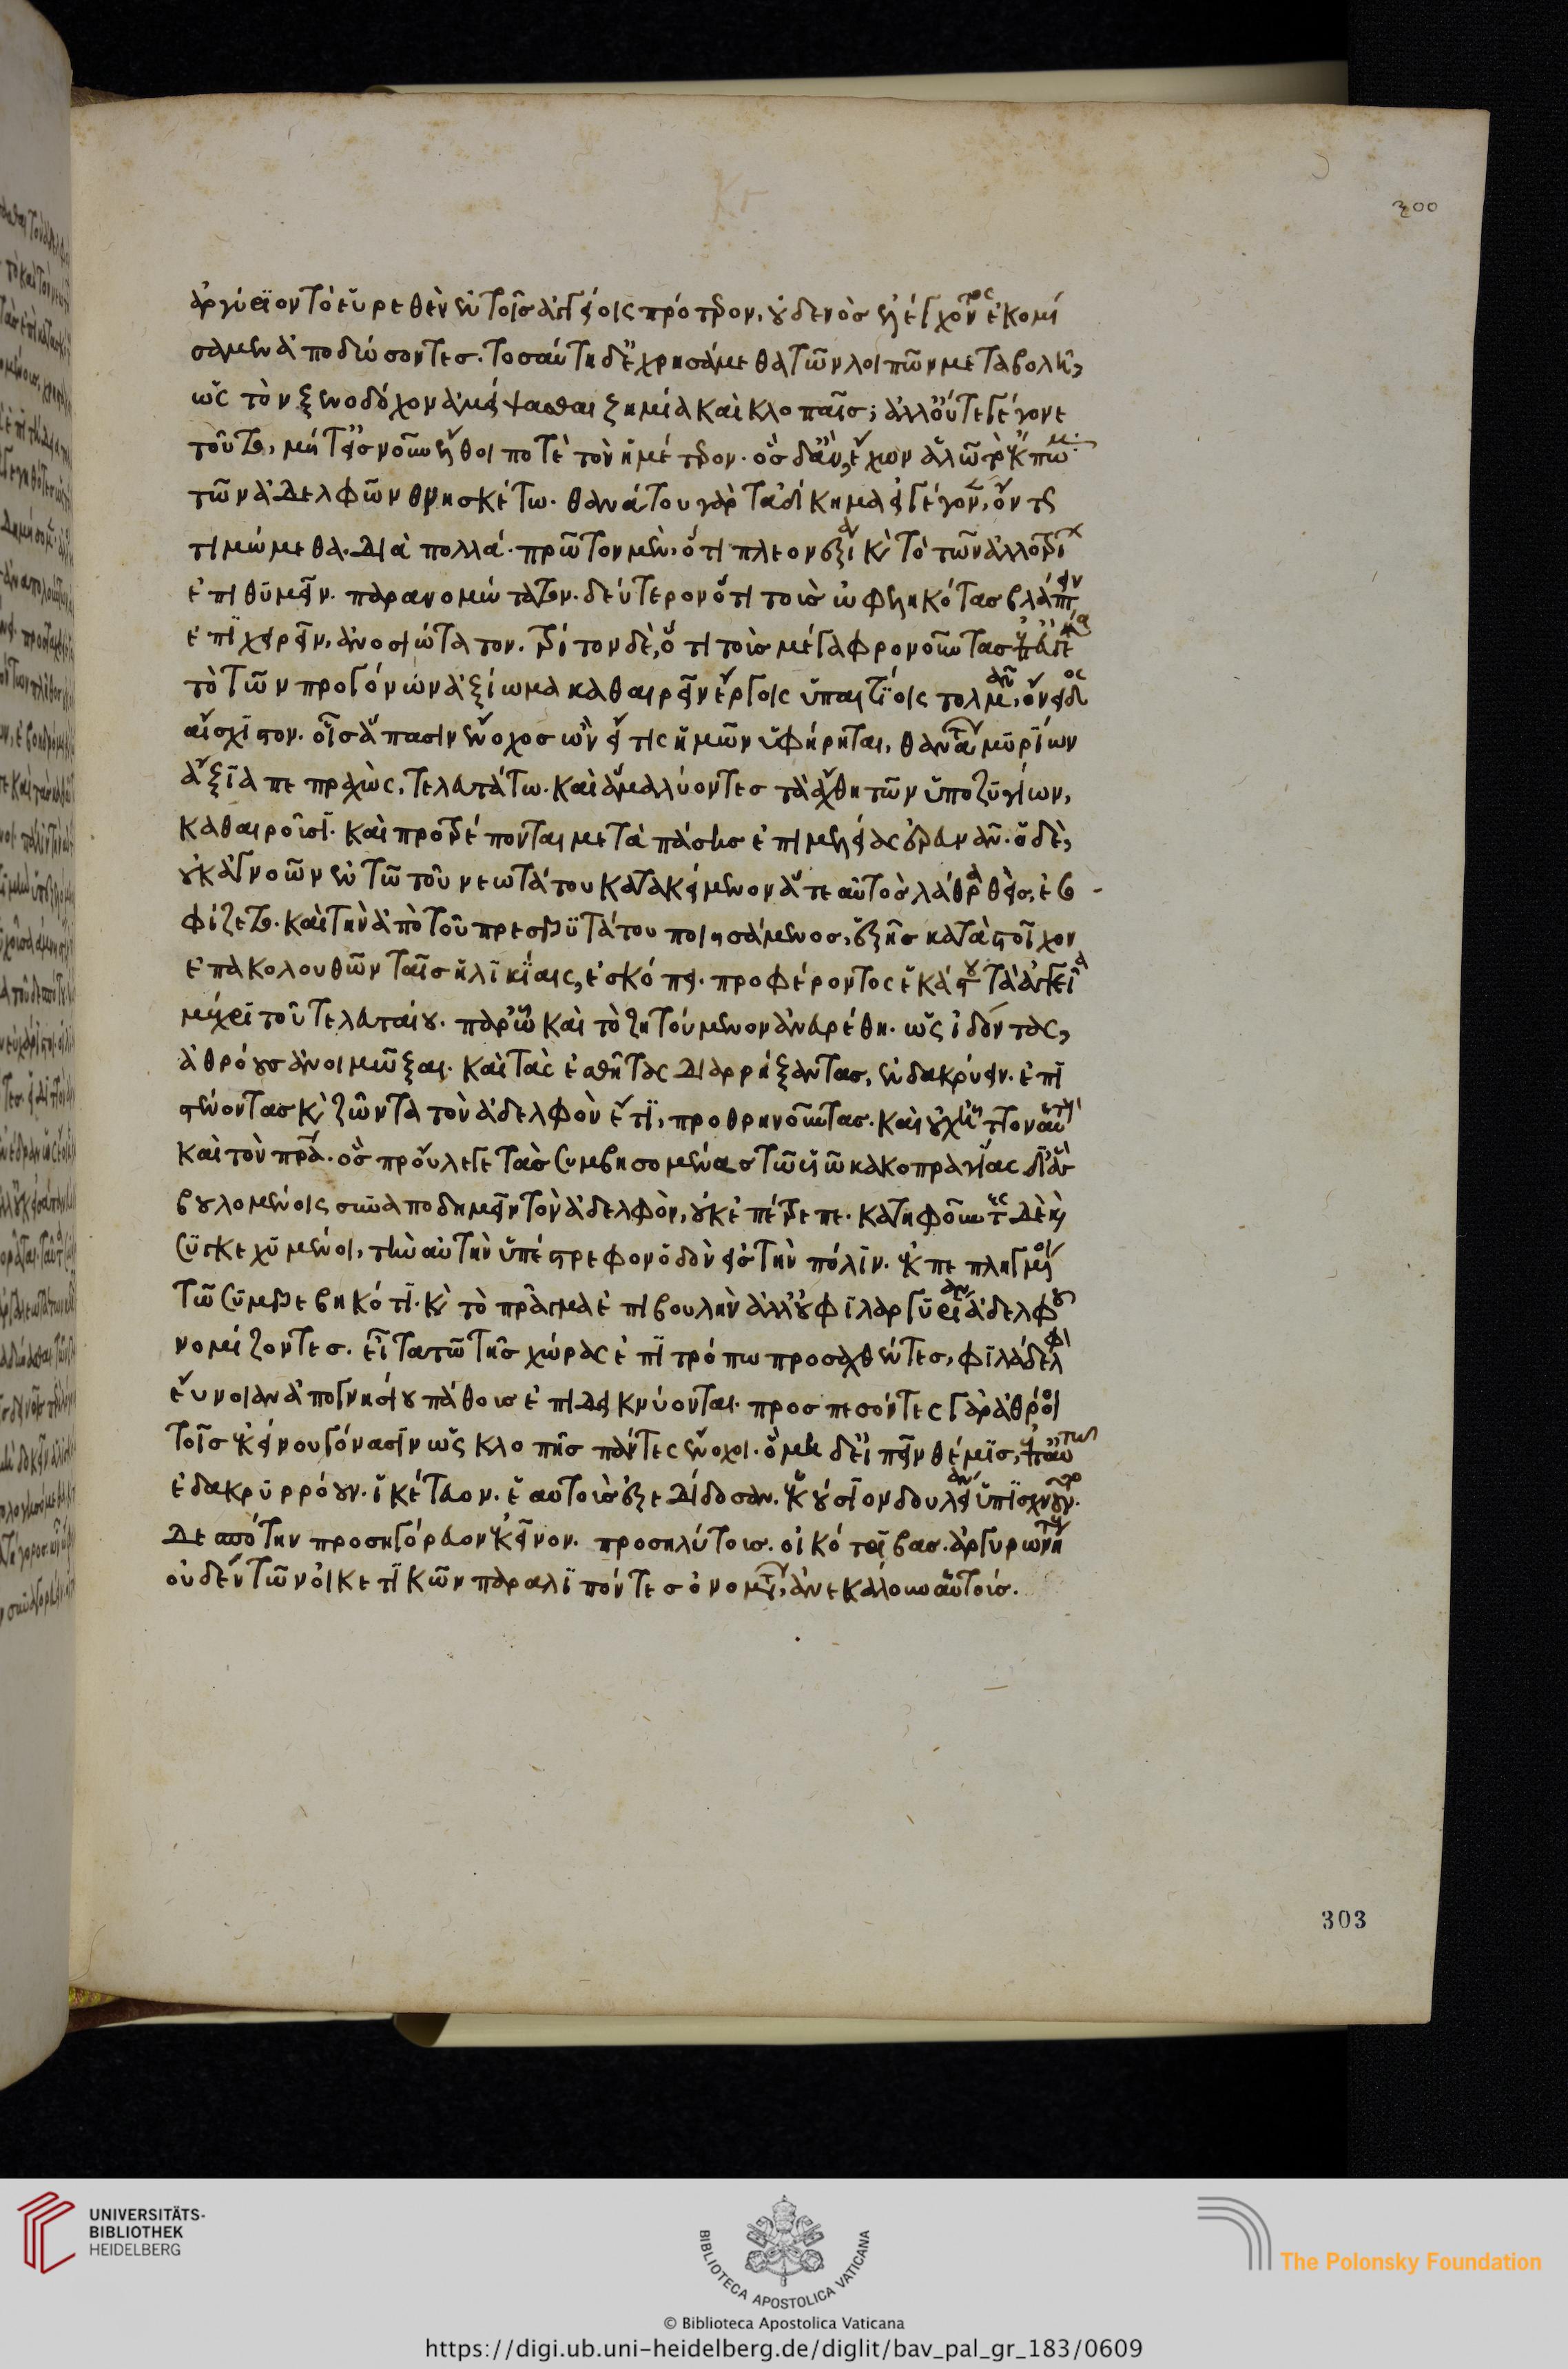 ἀργύριον τὸ εὑρεθὲν ἐν τοῖς ἀγγείοις πρότερον, οὐδενὸς ἐλέγχοντος ἐκομί
σαμεν ἀποδώσοντες. τοσαύτη δ' ἐχρησάμεθα τῶν λοιπῶν μεταβολῆ,
ὡς τὸν ξενοδόχον ἀμείψασθαι ζημία καὶ κλοπαῖς; ἀλλ' οὔτε γέγονε
τοῦτο, μήτ' εἰς νοῦν ἔλθοι ποτὲ τὸν ἡμέτερον. ὃς δ' ἂν, ἔχων ἁλῶ τὸ ἔκπωμα
τῶν ἀδελφῶν θνησκέτω. θανάτου γὰρ τἀδίκημα εἰ γέγονεν, ὄντως
τιμώμεθα. διὰ πολλά. πρῶτον μὲν, ὅτι πλεονεξία καὶ τὸ τῶν ἀλλοτρίων
ἐπιθυμεῖν. παρανομώτατον. δεύτερον ὅτι τοὺς ὠφεληκότας βλάπτειν
ἐπιχειρεῖν, ἀνοσιώτατον. τρίτον δὲ, ὅτι τοὺς μέγα φρονοῦντας ἐπ'
τὸ τῶν προγόνων ἀξίωμα καθαιρεῖν ἔργοις ὑπαιτίοις τολμᾶν, ὄνειδος
αἴσχιστον. οἷς ἅπασιν ἔνοχος ὢν εἴ τις ἡμῶν ὑφήρηται, θανάτων μυρίων
ἄξια πεπραχὼς, τελευτάτω. καὶ ἅμα λύοντες τὰ ἄχθη τῶν ὑποζυγίων,
καθαιροῦσι. καὶ προτρέπονται μετὰ πάσης ἐπιμελείας ἐρευνᾶν. ὁ δὲ,
οὐκ ἀγνοῶν ἐν τῶ τοῦ νεωτάτου κατακείμενον ἅτε αὐτὸς λάθρα θεὶς, ἐσ
φίζετο. καὶ τὴν ἀπὸ τοῦ πρεσβυτάτου ποιησάμενος, ἑξῆς κατὰ στοῖχον
ἐπακολουθῶν ταῖς ἡλικίαις, ἐσκόπει. προφέροντος ἑκάστου τὰ ἀγγεῖα
μέχρι τοῦ τελευταίου. παρ' ὧ καὶ τὸ ζητούμενον ἀνευρέθη. ὡς ἰδόντας,
ἀθρόους ἀνοιμῶξαι. καὶ τὰς ἐσθῆτας διαρρήξαντας, ἐνδακρύειν. ἐπι
στένοντας καὶ ζῶντα τὸν ἀδελφὸν ἔτι, προθρηνοῦντας. καὶ οὐχ ἧττον αὑτοὺς
καὶ τὸν πατέρα. ὃς προύλεγε τὰς συμβησομένας τῶ υἱῶ κακοπραγίας δι' ἃς
βουλομένοις συναποδημεῖν τὸν ἀδελφὸν, οὐκ ἐπέτρεπε. κατηφοῦντες δὲ καὶ
συγκεχυμένοι, τὴν αὐτὴν ὑπέστρεφον ὁδὸν εἰς τὴν πόλιν. ἐκπεπληγμένοι
τῶ συμβεβηκότι. καὶ τὸ πρᾶγμα ἐπιβουλὴν ἀλλ' οὐ φιλαργυρίαν ἀδελφοῦ
νομίζοντες. εἶτα τῶ τῆς χώρας ἐπιτρόπω προσαχθέντες, φιλάδελφον
εὔνοιαν ἀπὸ γνησίου πάθους ἐπιδείκνυνται. προσπεσόντες γὰρ ἀθρόοι
τοῖς ἐκείνου γόνασιν ὡς κλοπῆς πάντες ἔνοχοι. ὃ μηδ' εἰπεῖν θέμις,
ἐδακρυρρόουν. ἱκέτευον. ἑαυτοὺς ἐξεδίδοσαν. ἑκούσιον δουλείαν ὑπισχνοῦντο.
δεσπότην προσηγόρευον ἐκεῖνον. προσηλύτους. οἰκότριβας. ἀργυρωνήτους
οὐδὲν τῶν οἰκετικῶν παραλιπόντες ὄνομα, ἀνεκάλουν αὑτούς.
300
303
UNIVERSITÄTS-
BIBLIOTHEK
HEIDELBERG
BIBLIOTECA APOSTOLICA VATICANA
The Polonsky Foundation
© Biblioteca Apostolica Vaticana
https://digi.ub.uni-heidelberg.de/diglit/bav_pal_gr_183/0609